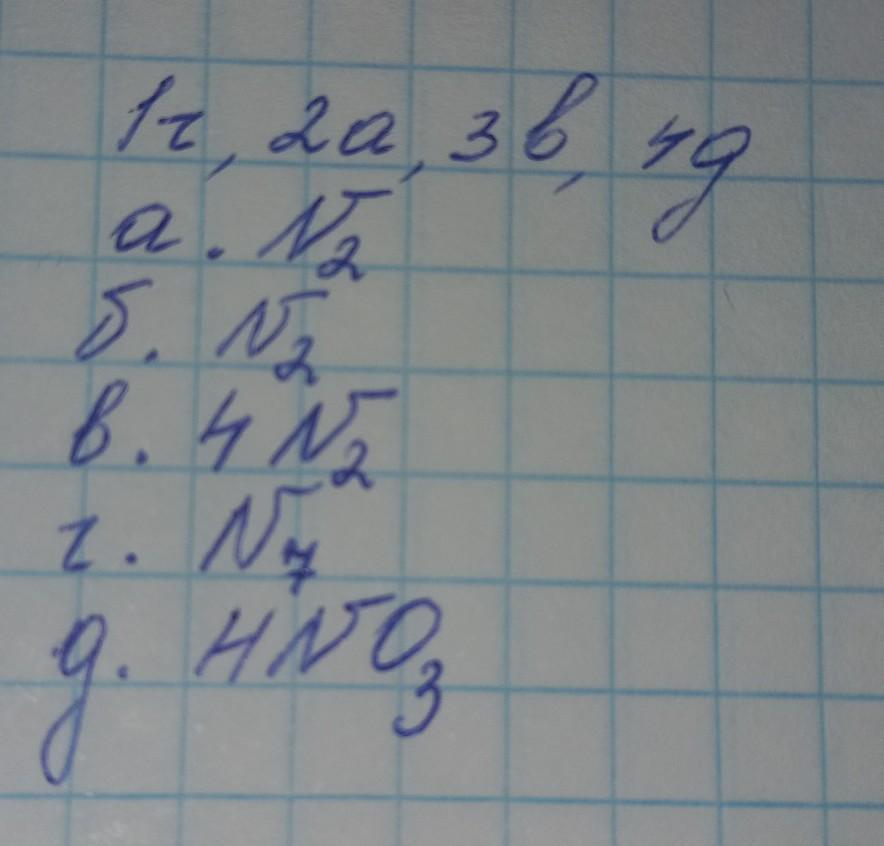 1г, 2а, 3в, 4д
а. N₂
б. N₂
в. 4N₂
г. N₇
д. HNO₃